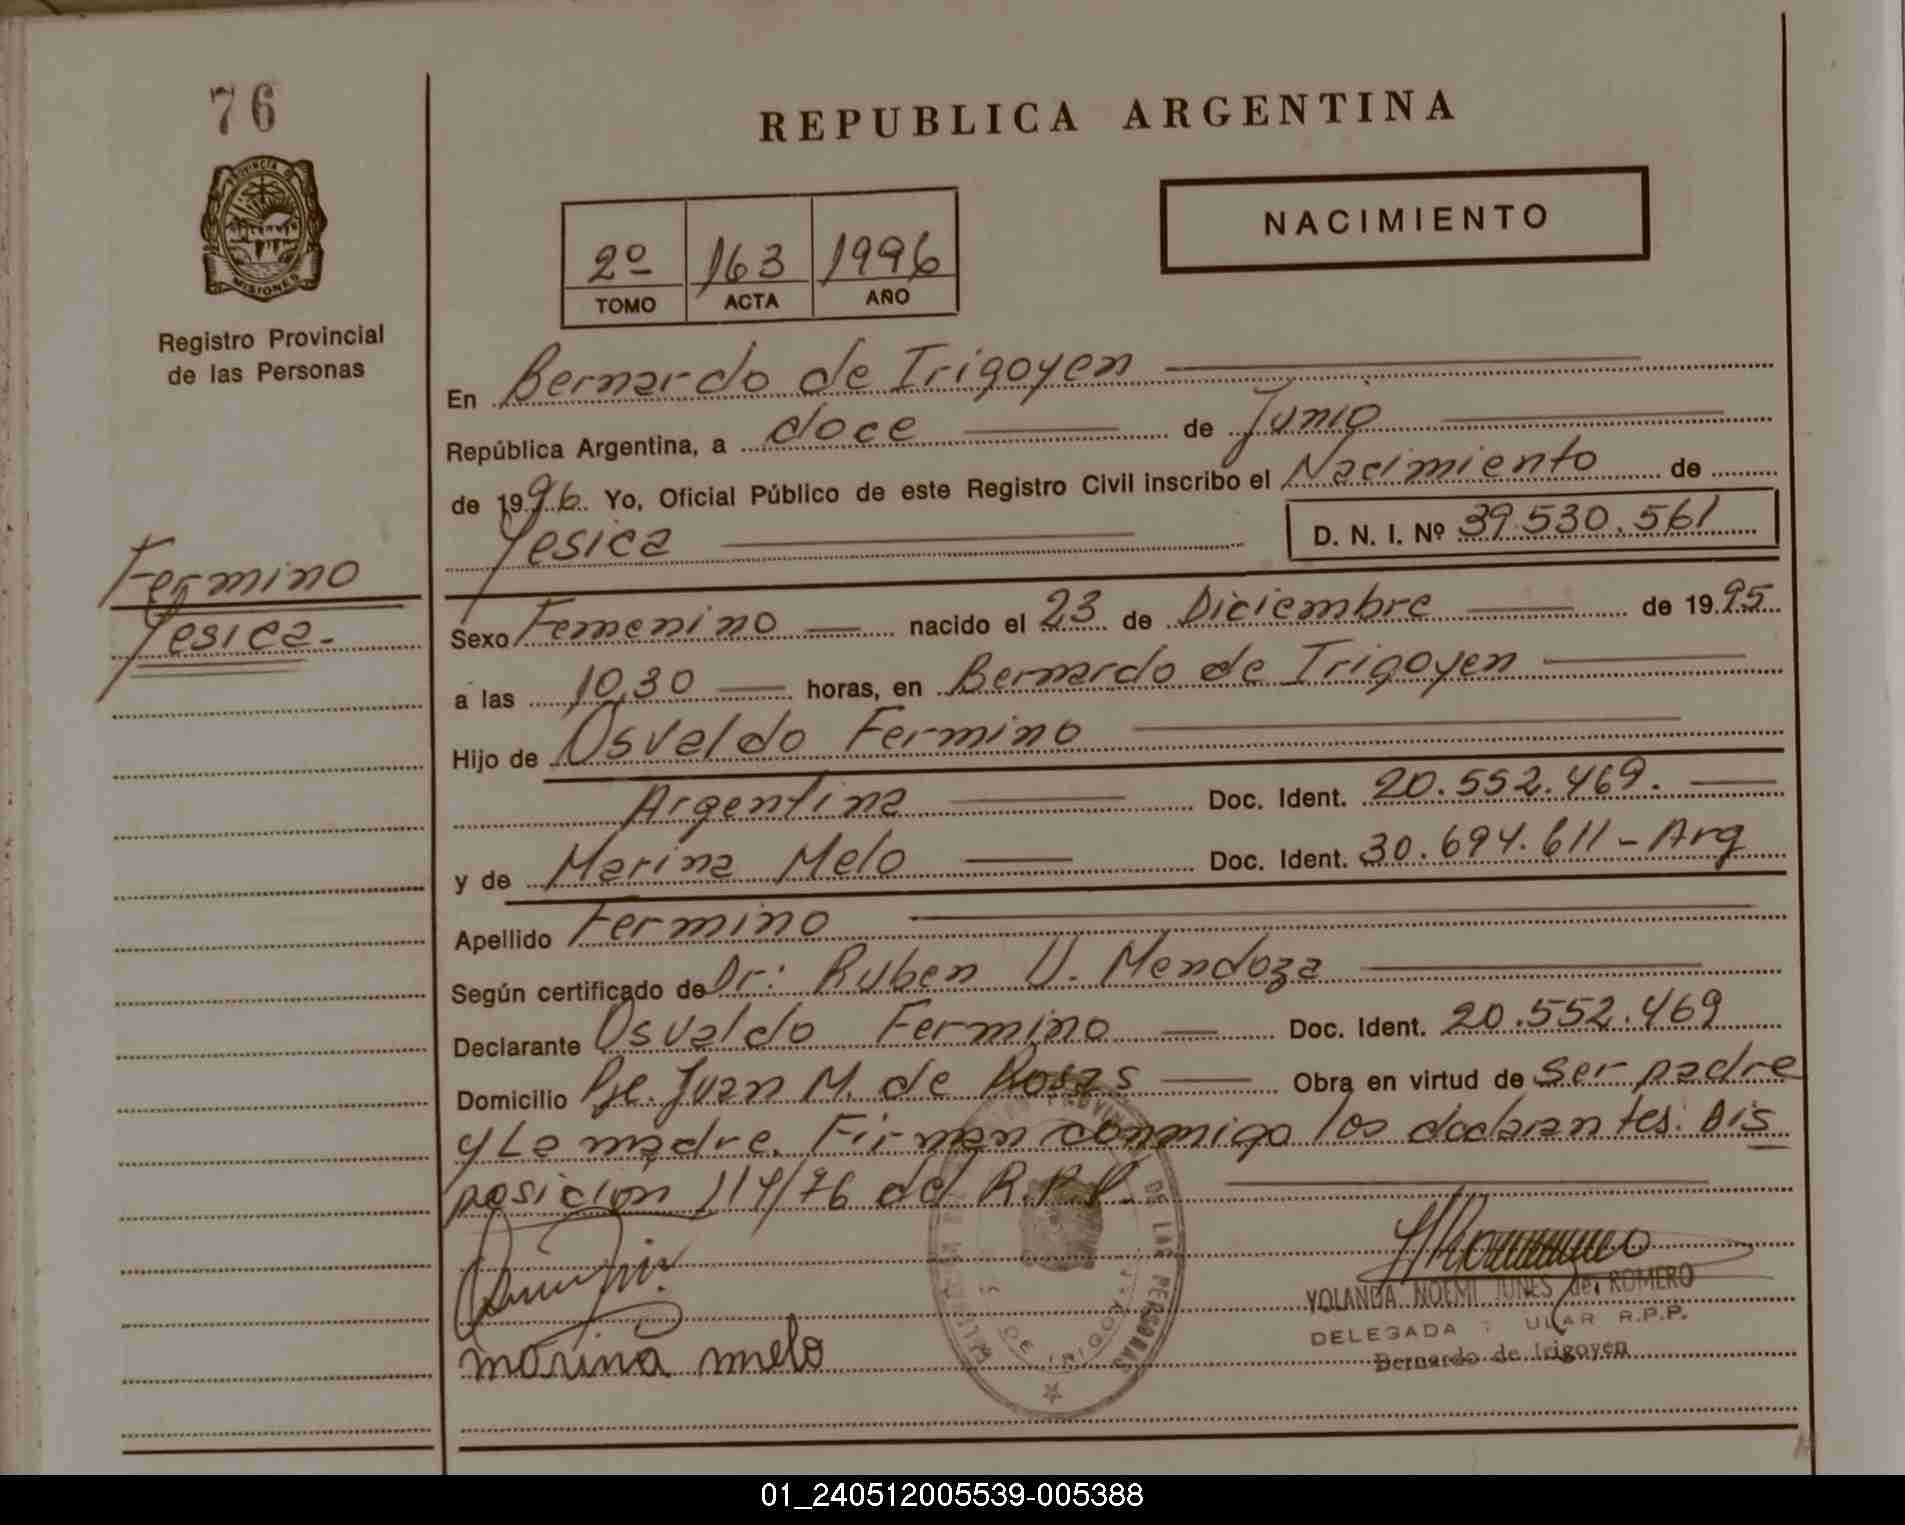 76
PROVINCIA DE
MISIONES
Registro Provincial
de las Personas
Fermino
Yesica.-
REPUBLICA ARGENTINA
NACIMIENTO
2º 163 1996
TOMO ACTA AÑO
En Bernardo de Irigoyen
República Argentina, a doce de Junio
de 1996. Yo, Oficial Público de este Registro Civil inscribo el Nacimiento de
Yesica D. N. I. Nº 39.530.561
Sexo Femenino nacido el 23 de Diciembre de 1995
a las 10,30 horas, en Bernardo de Irigoyen
Hijo de Osvaldo Fermino
Argentina Doc. Ident. 20.552.469.
y de Marina Melo Doc. Ident. 30.694.611 - Arg
Apellido Fermino
Según certificado de Dr: Ruben V. Mendoza
Declarante Osvaldo Fermino Doc. Ident. 20.552.469
Domicilio Pje. Juan M. de Rosas Obra en virtud de ser padre
y La madre. Firman conmigo los declarantes. Dis
posición 114/76 del R.P.P.
marina melo
DE LAS PERSONAS
DE IRIGOY
YOLANDA NOEMI JUNES de ROMERO
DELEGADA R.P.P.
Bernardo de Irigoyen
01_240512005539-005388